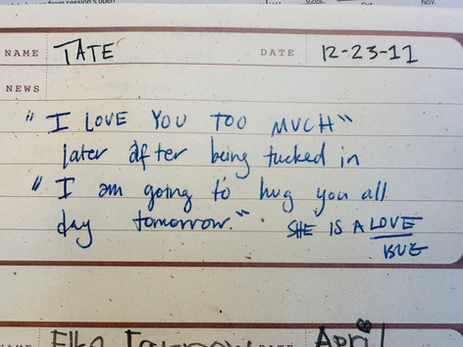 NAME TATE DATE 12-23-11
NEWS
"I LOVE YOU TOO MUCH"
later after being tucked in
"I am going to hug you all
day tomorrow." SHE IS A LOVE
BUG
April